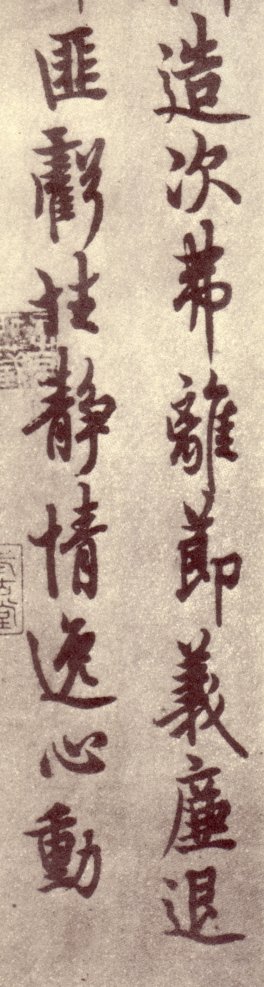 造次弗離節義廉退
匪虧性静情逸心動